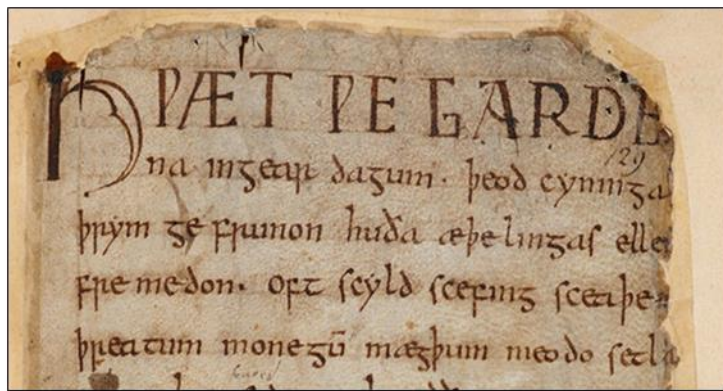 HǷÆT ǷE GARDE
129
na ingear dagum. þeod cyninga
þrym ge frunon huða æþelingas elle
fremedon. oft scyld scefing sceaþe
þreatum monegū mægþum meodo setla